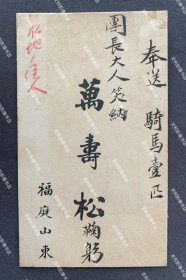 奉送 騎馬壹匹
團長大人笑納
萬壽松 鞠躬
福庭山東
松地住人